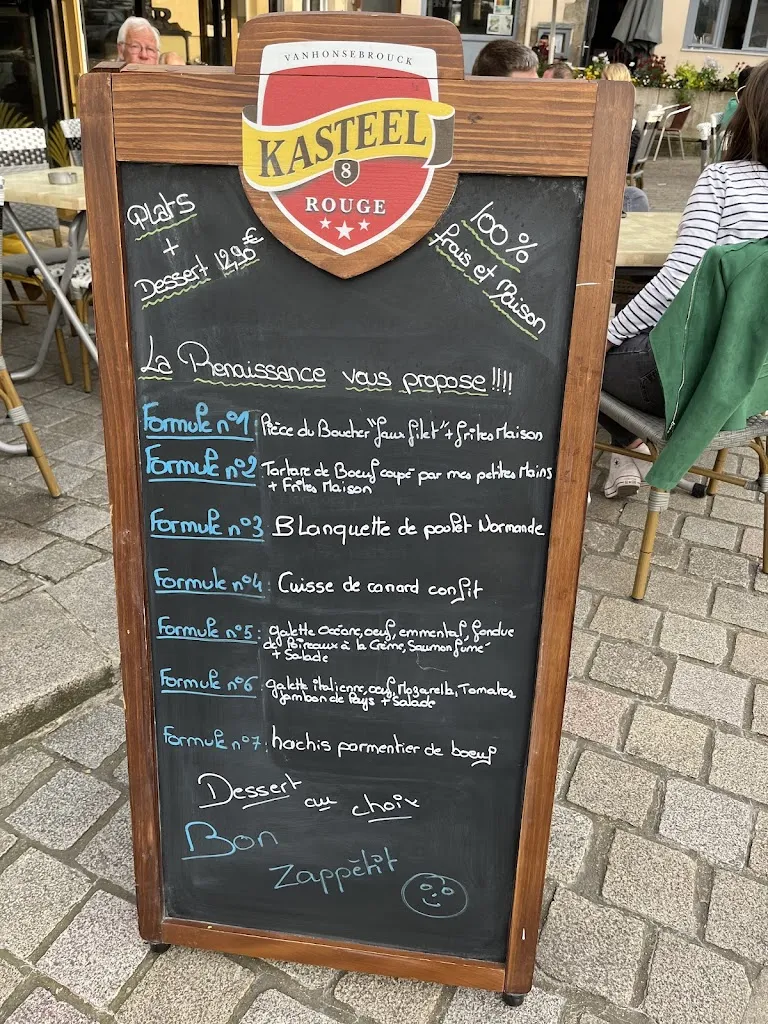 VANHONSEBROUCK
KASTEEL
8
ROUGE
Plats
+
Dessert 12,90€
100%
frais et Maison
La Renaissance vous propose !!!!
Formule n°1 : Pièce du Boucher "faux filet" + frites Maison
Formule n°2 : Tartare de Boeuf coupé par mes petites Mains
+ Frites Maison
Formule n°3 : Blanquette de poulet Normande
Formule n°4 : Cuisse de canard confit
Formule n°5 : galette Océane, oeuf, emmental, fondue
de Poireaux à la Crème, Saumon fumé
+ Salade
Formule n°6 : galette italienne, oeuf, Mozarella, Tomates
Jambon de Pays + Salade
Formule n°7 : hachis parmentier de boeuf
Dessert au choix
Bon
Zappétit